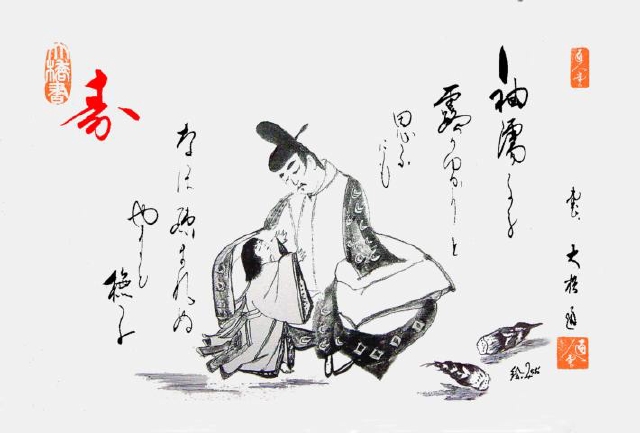 袖濡るる
露のゆかりと
思ふ
にも
なほ疎まれぬ
やまと
撫子
寿
大橋書